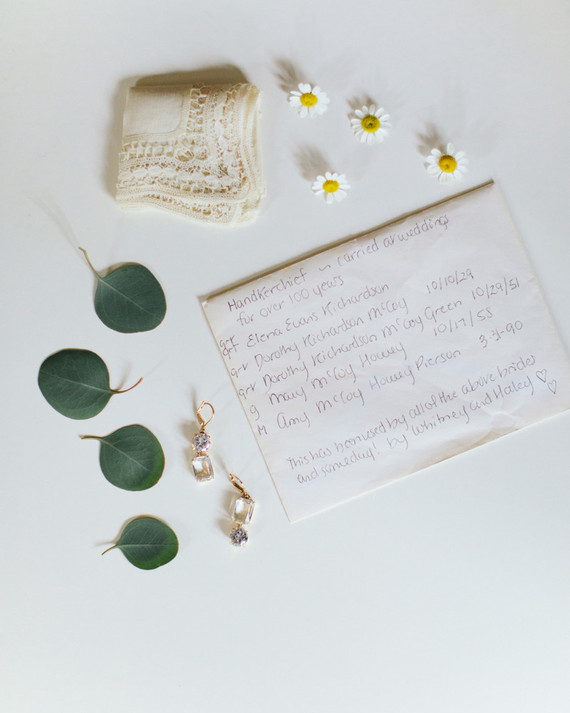 Handkerchief ~ carried at weddings
for over 100 years
Elena Evans Richardson
Dorothy Richardson McCoy 10/10/29
Dorothy Richardson McCoy Green 10/29/51
g Mary McCoy Howey 10/17/55
M Amy McCoy Howey Pierson 3-31-90
this has been used by all of the above brides
and someday! by Whitney and Haley ♡ ♡